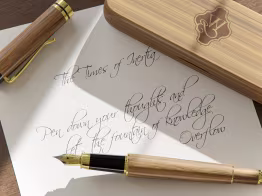 The Times of Inertia
Pen down your thoughts and
let the fountain of knowledge
Overflow